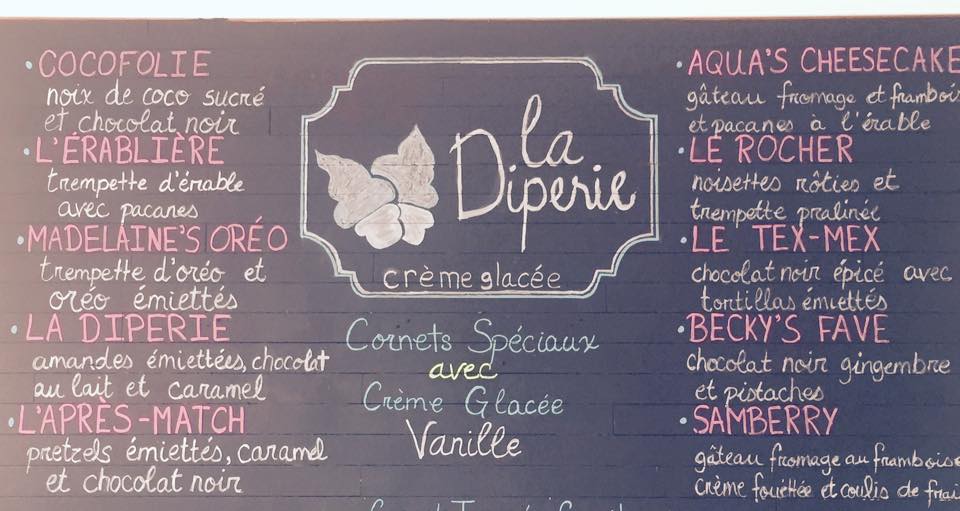 • COCOFOLIE
noix de coco sucré
et chocolat noir
• L'ÉRABLIÈRE
trempette d'érable
avec pacanes
• MADELAINE'S ORÉO
trempette d'oréo et
oréo émiettés
• LA DIPERIE
amandes émiettées, chocolat
au lait et caramel
• L'APRÈS-MATCH
pretzels émiettés, caramel
et chocolat noir
la
Diperie
crème glacée
Cornets Spéciaux
avec
Crème Glacée
Vanille
• AQUA'S CHEESECAKE
gâteau fromage et frambois
et pacanes à l'érable
• LE ROCHER
noisettes rôties et
trempette pralinée
• LE TEX-MEX
chocolat noir épicé avec
tortillas émiettés
• BECKY'S FAVE
chocolat noir gingembre
et pistaches
• SAMBERRY
gâteau fromage au framboise
crème fouéttée et coulis de frai